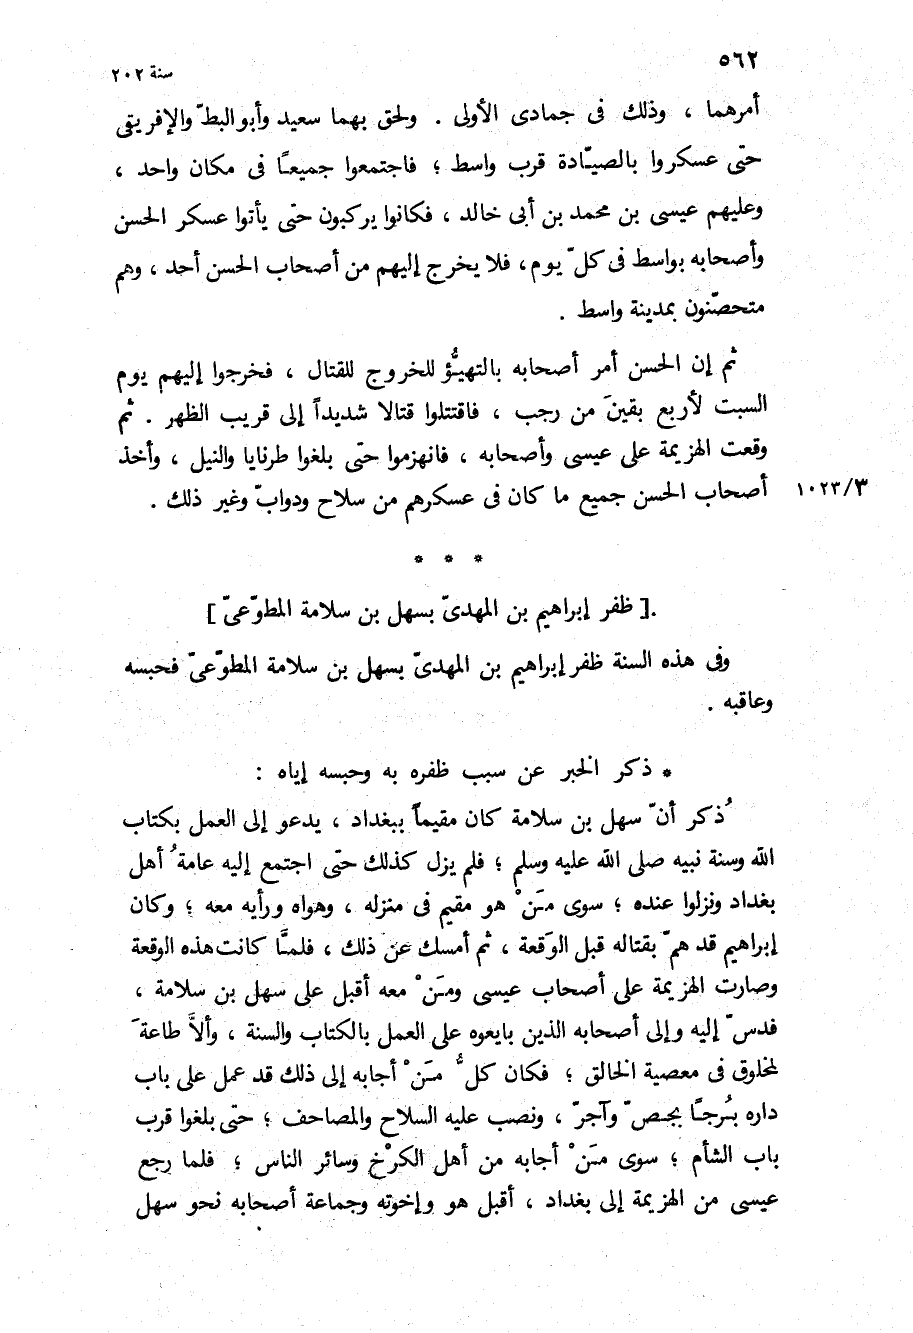 ٥٦٢
سنة ٢٠٢
أمرهما ، وذلك فى جمادى الأولى . ولحق بهما سعيد وأبو البطّ والإفريقى
حتى عسكروا بالصيّادة قرب واسط ؛ فاجتمعوا جميعًا فى مكان واحد ،
وعليهم عيسى بن محمد بن أبى خالد ، فكانوا يركبون حتى يأتوا عسكر الحسن
وأصحابه بواسط فى كلّ يوم ، فلا يخرج إليهم من أصحاب الحسن أحد ، وهم
متحصّنون بمدينة واسط .
ثم إن الحسن أمر أصحابه بالتهيُّؤ للخروج للقتال ، فخرجوا إليهم يوم
السبت لأربع بقينَ من رجب ، فاقتتلوا قتالا شديداً إلى قريب الظهر . ثم
وقعت الهزيمة على عيسى وأصحابه ، فانهزموا حتى بلغوا طرنايا والنيل ، وأخذ
أصحاب الحسن جميع ما كان فى عسكرهم من سلاح ودوابّ وغير ذلك . ١٠٢٣/٣
* * *
.[ ظفر إبراهيم بن المهدىّ بسهل بن سلامة المطوّعىّ ]
وفى هذه السنة ظفر إبراهيم بن المهدىّ بسهل بن سلامة المطوّعىّ فحبسه
وعاقبه .
* ذكر الخبر عن سبب ظفره به وحبسه إياه :
ذُكر أنّ سهل بن سلامة كان مقيماً ببغداد ، يدعو إلى العمل بكتاب
الله وسنة نبيه صلى الله عليه وسلم ؛ فلم يزل كذلك حتى اجتمع إليه عامةُ أهل
بغداد ونزلوا عنده ؛ سوى مَنْ هو مقيم فى منزله ، وهواه ورأيه معه ؛ وكان
إبراهيم قد همّ بقتاله قبل الوَقعة ، ثم أمسك عن ذلك ، فلمَّا كانت هذه الوقعة
وصارت الهزيمة على أصحاب عيسى ومَنْ معه أقبل على سهل بن سلامة ،
فدسّ إليه وإلى أصحابه الذين بايعوه على العمل بالكتاب والسنة ، وألاَّ طاعةَ
لمخلوق فى معصية الخالق ؛ فكان كلُّ مَنْ أجابه إلى ذلك قد عمل على باب
داره بُرجًا بجصّ وآجرّ ، ونصب عليه السلاح والمصاحف ؛ حتى بلغوا قرب
باب الشأم ؛ سوى مَنْ أجابه من أهل الكرْخ وسائر الناس ؛ فلما رجع
عيسى من الهزيمة إلى بغداد ، أقبل هو وإخوته وجماعة أصحابه نحو سهل